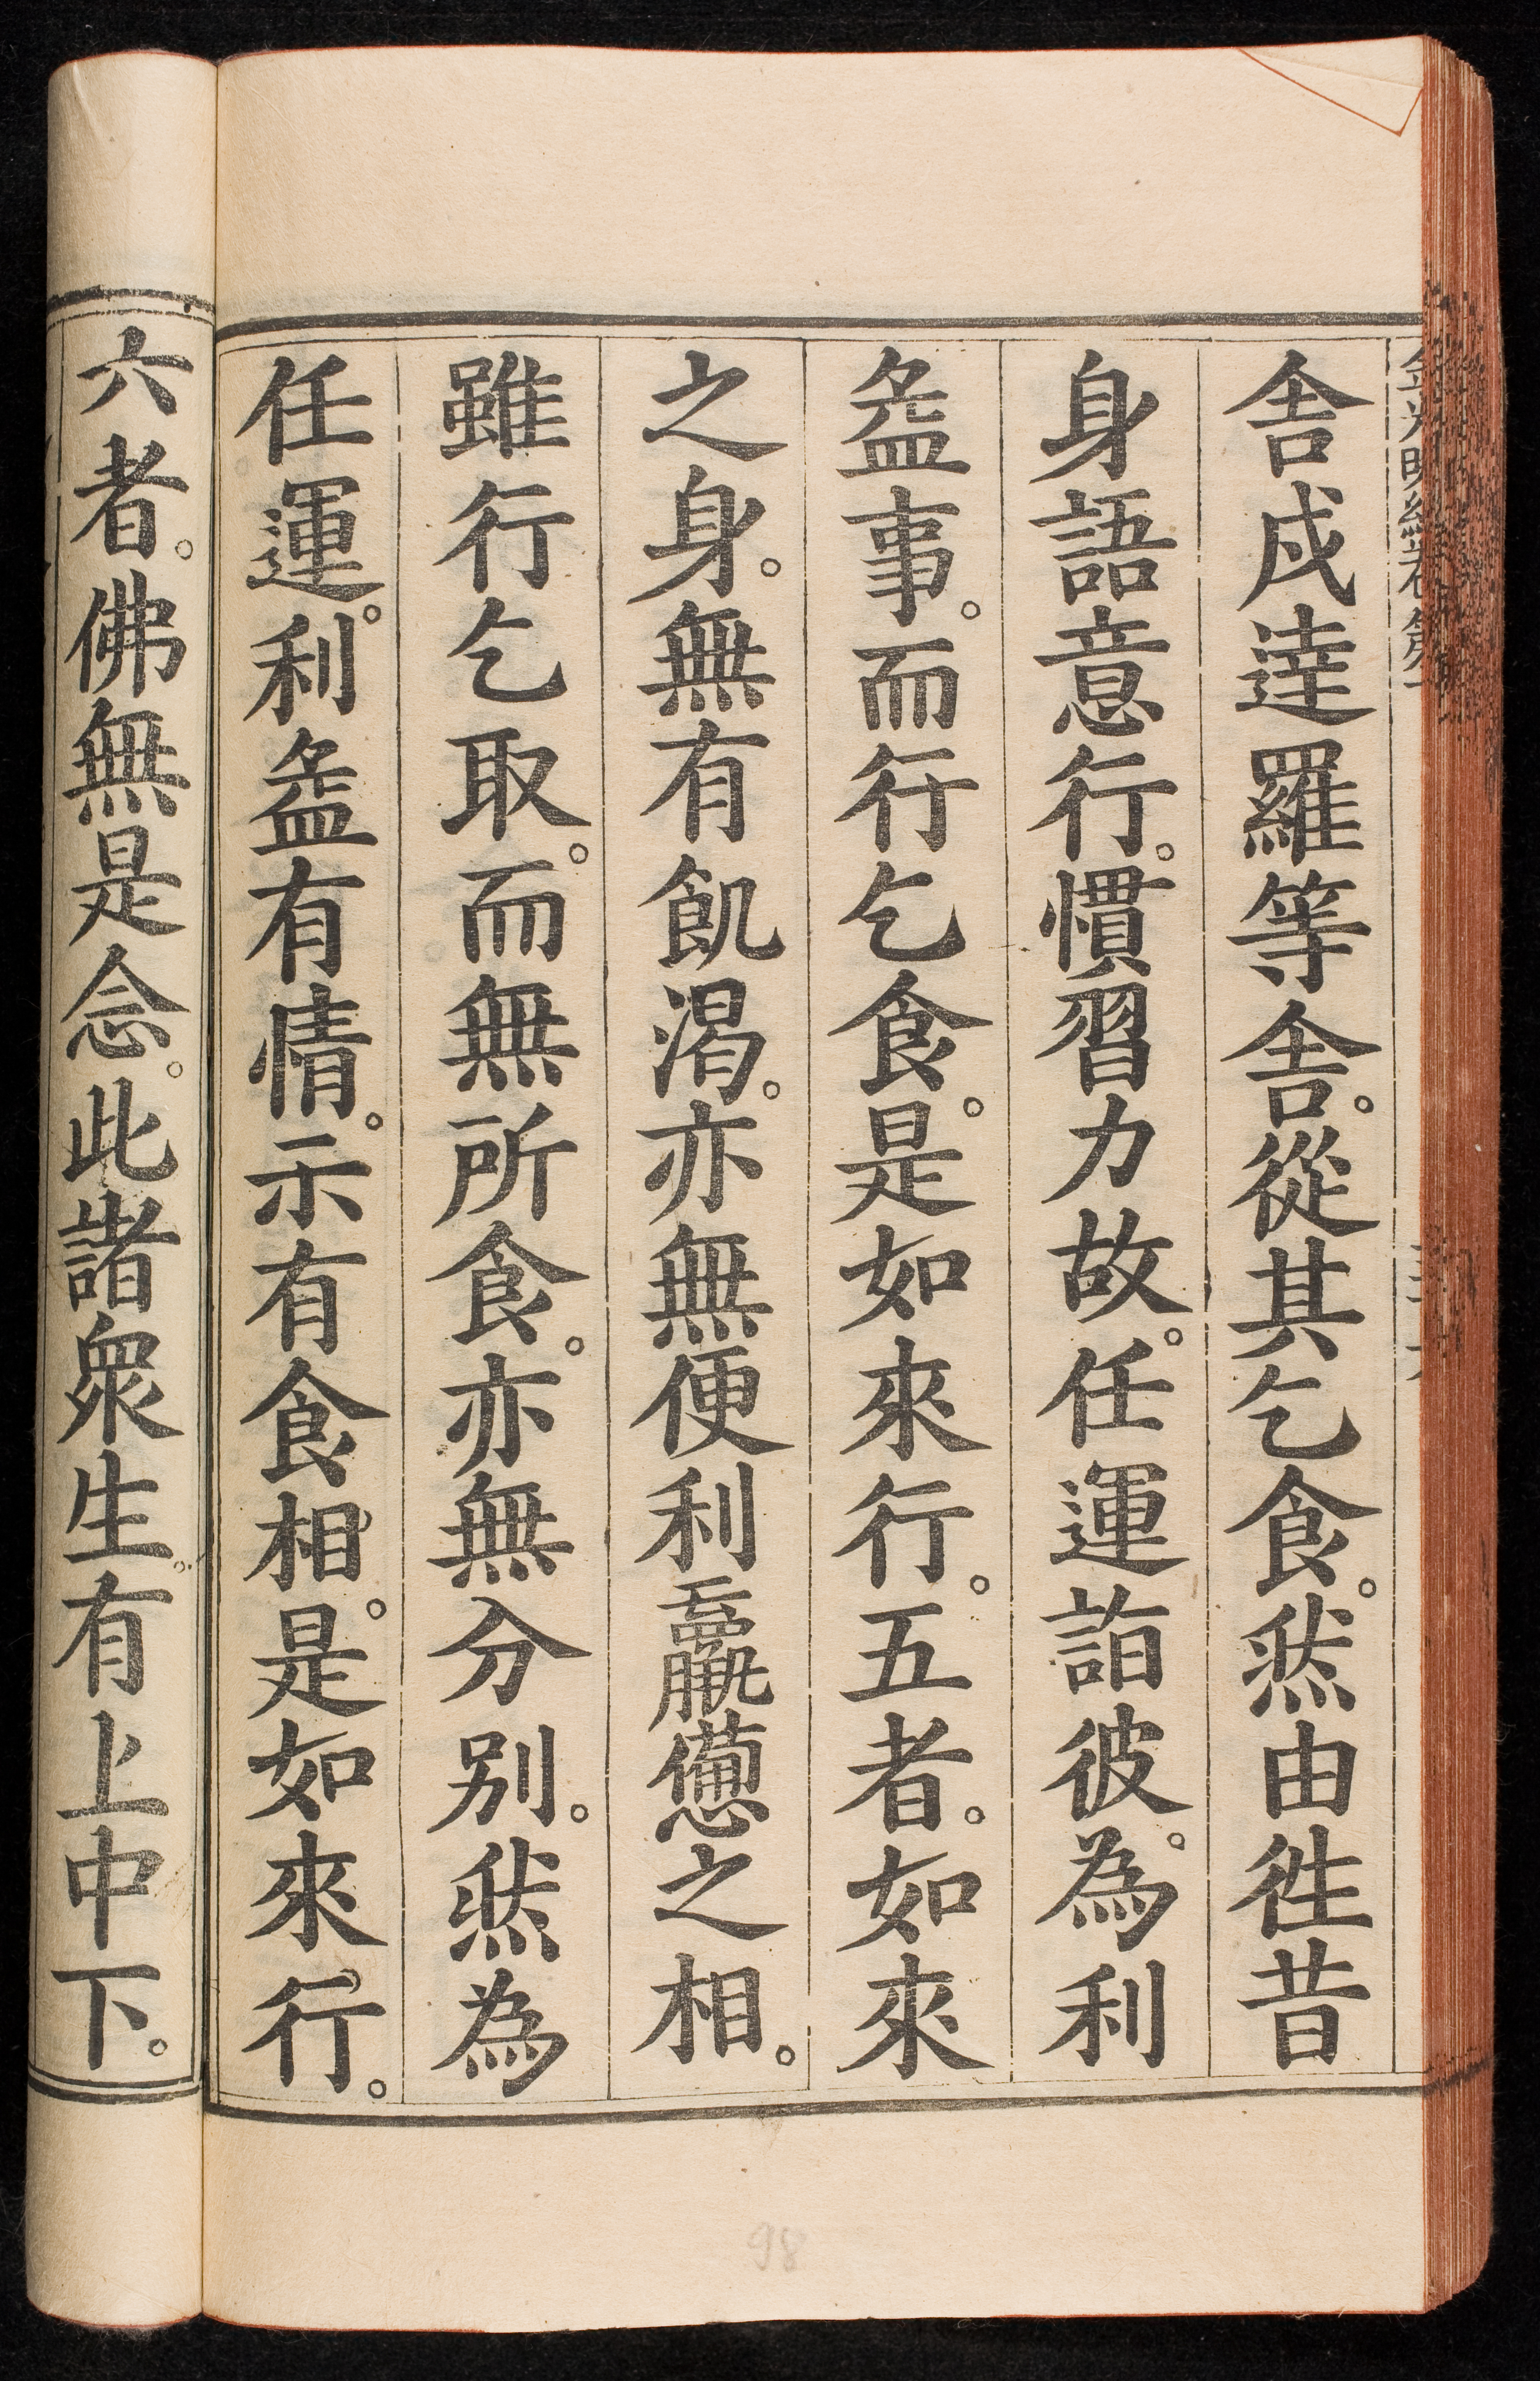 舎戍逹羅等舎。從其乞食。然由徃昔
身語意行。慣習力故。任運詣彼。為利
益事。而行乞食。是如來行。五者。如來
之身。無有飢渴。亦無便利羸憊之相。
雖行乞取。而無所食。亦無分别。然為
任運。利益有情。示有食相。是如來行。
六者。佛無是念。此諸衆生。有上中下。
98